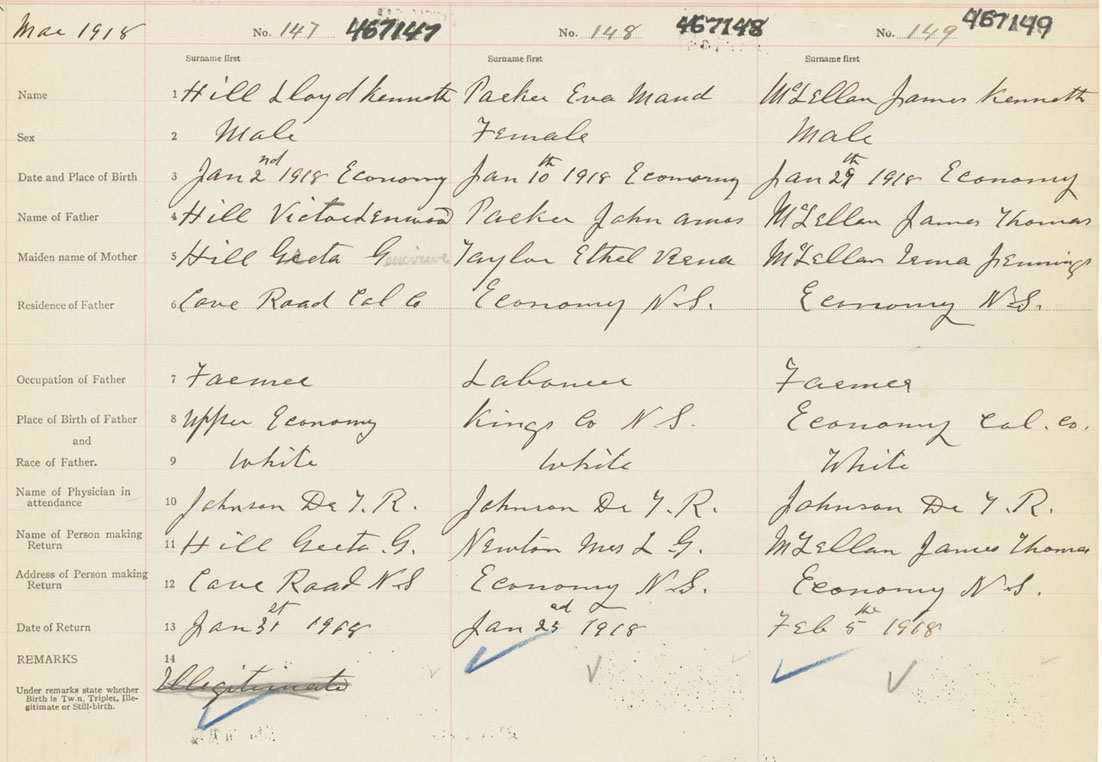 Mar 1918 No. 147 467147 No. 148 467148 No. 149 467149
Surname first Surname first Surname first
Name 1 Hill Lloyd Kenneth Parker Eva Maud McLellan James Kenneth
Sex 2 Male Female Male
Date and Place of Birth 3 Jan 2nd 1918 Economy Jan 10th 1918 Economy Jan 29th 1918 Economy
Name of Father 4 Hill Victor Lenwood Parker John Amos McLellan James Thomas
Maiden name of Mother 5 Hill Greta Genevieve Taylor Ethel Verna McLellan Jennings
Residence of Father 6 Cove Road Col Co Economy N.S. Economy N.S.
Occupation of Father 7 Farmer Labourer Farmer
Place of Birth of Father 8 Upper Economy Kings Co N.S. Economy Col. Co.
and
Race of Father. 9 White White White
Name of Physician in
attendance 10 Johnson Dr T. R. Johnson Dr T. R. Johnson Dr T. R.
Name of Person making
Return 11 Hill Greta G. Newton Mrs L G. McLellan James Thomas
Address of Person making
Return 12 Cove Road N.S Economy N.S. Economy N.S.
Date of Return 13 Jan 31st 1918 Jan 1918 Feb 5the 1918
REMARKS 14
Illegitimate
Under remarks state whether
Birth is Twin, Triplet, Ille-
gitimate or Still-birth.